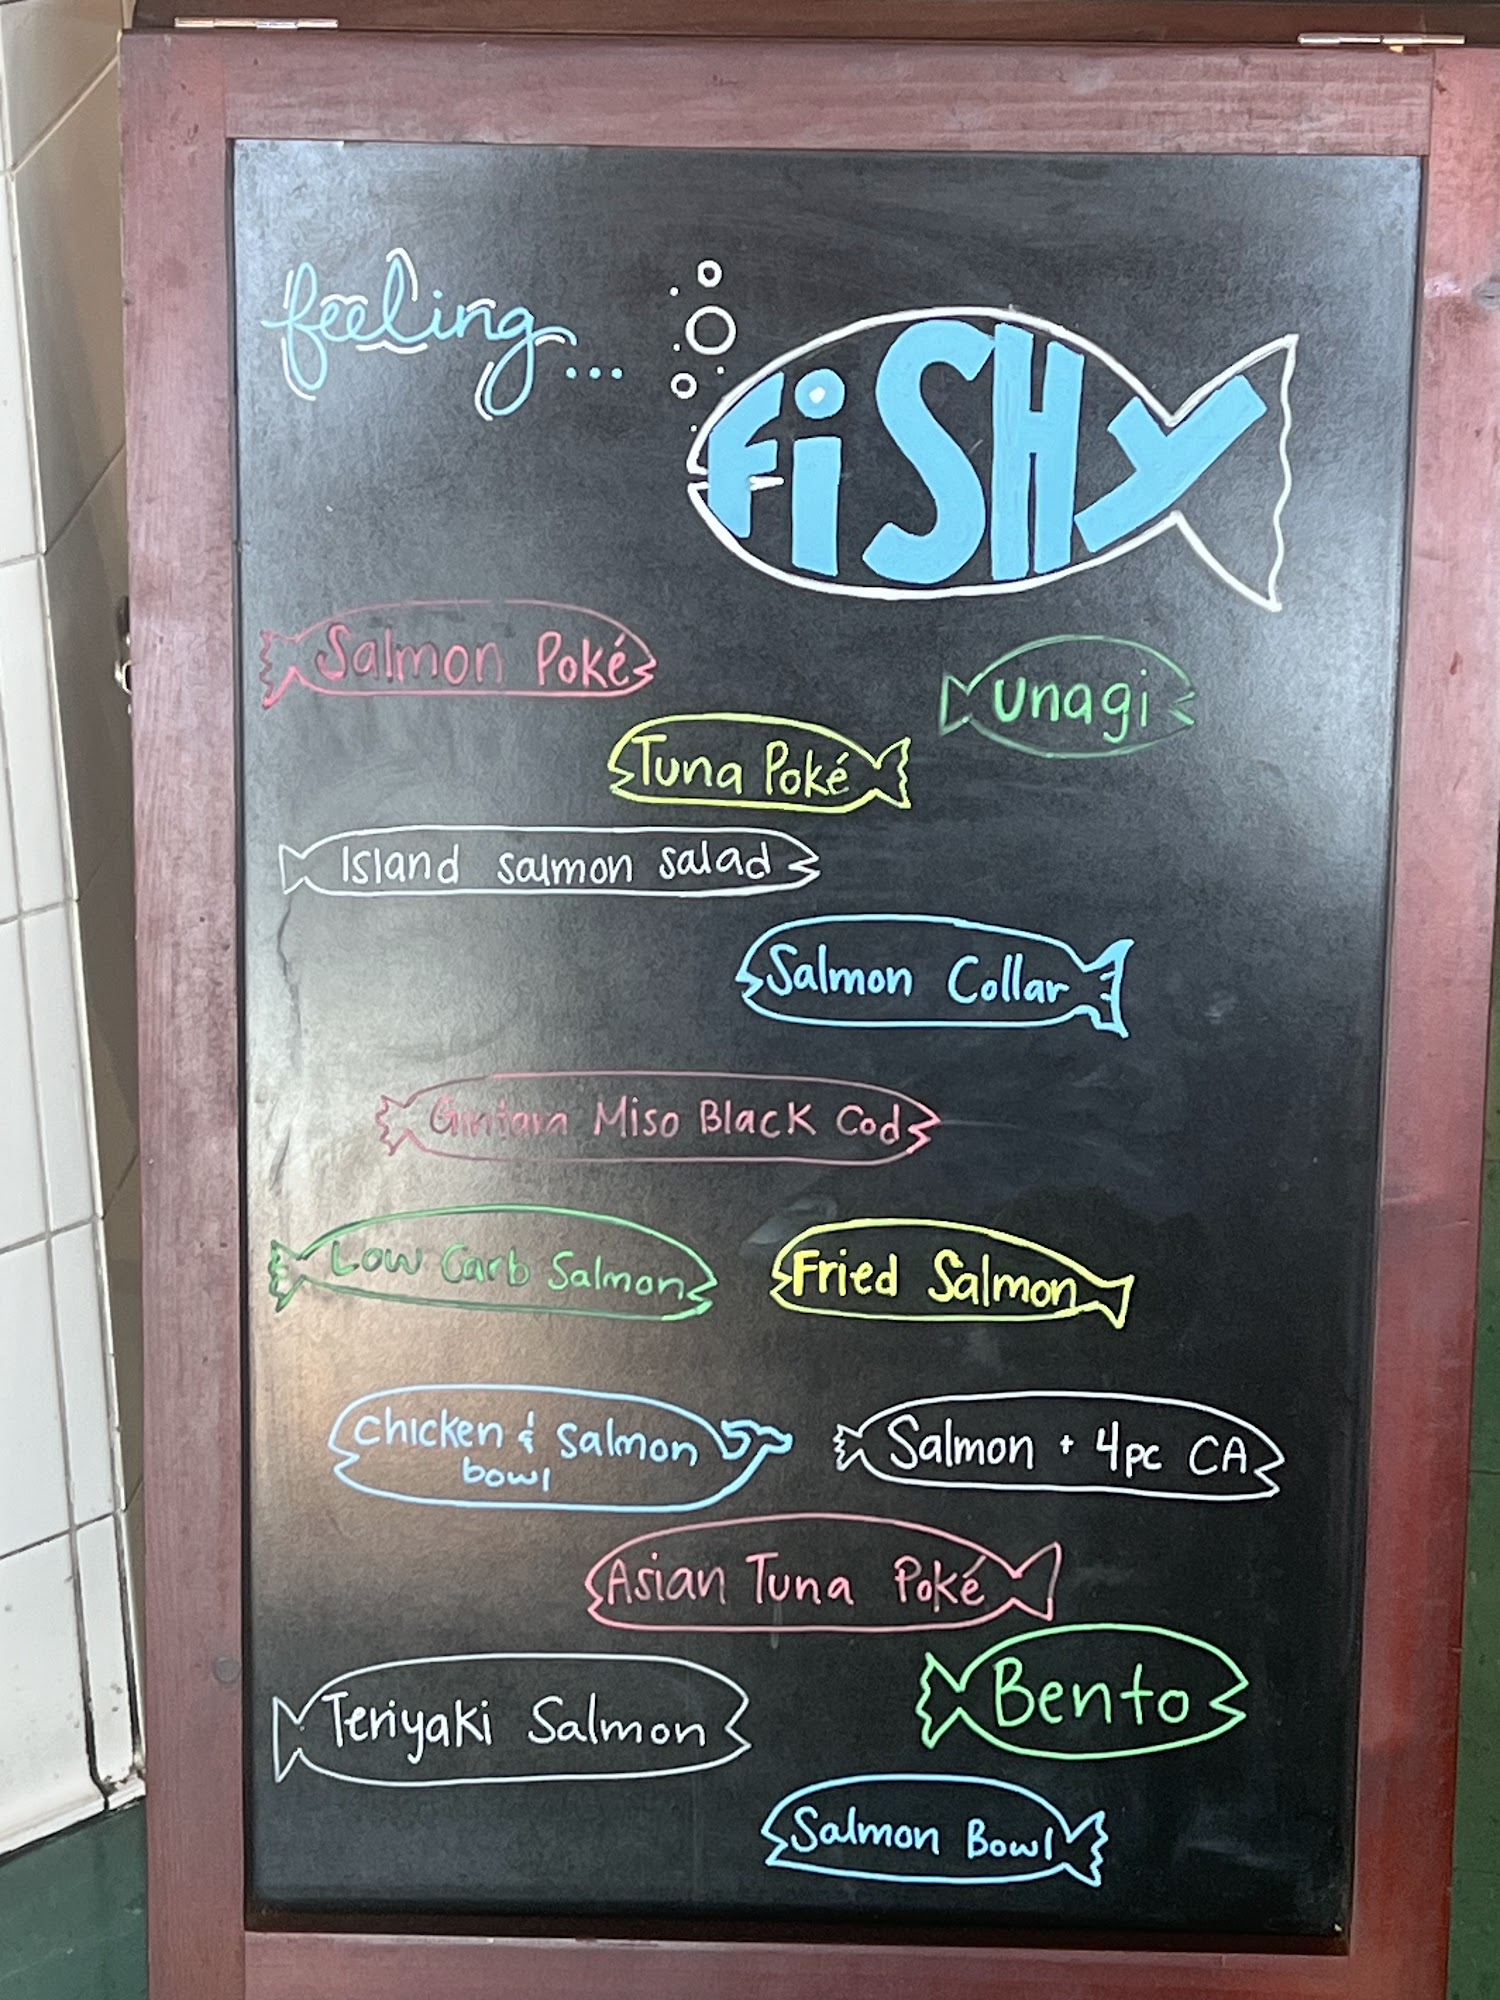 feeling...
FiSHY
Salmon Poké
Unagi
Tuna Poké
Island salmon salad
Salmon Collar
Gintara Miso Black Cod
Low Carb Salmon
Fried Salmon
Chicken & Salmon
bowl
Salmon + 4pc CA
Asian Tuna Poké
Bento
Teriyaki Salmon
Salmon Bowl